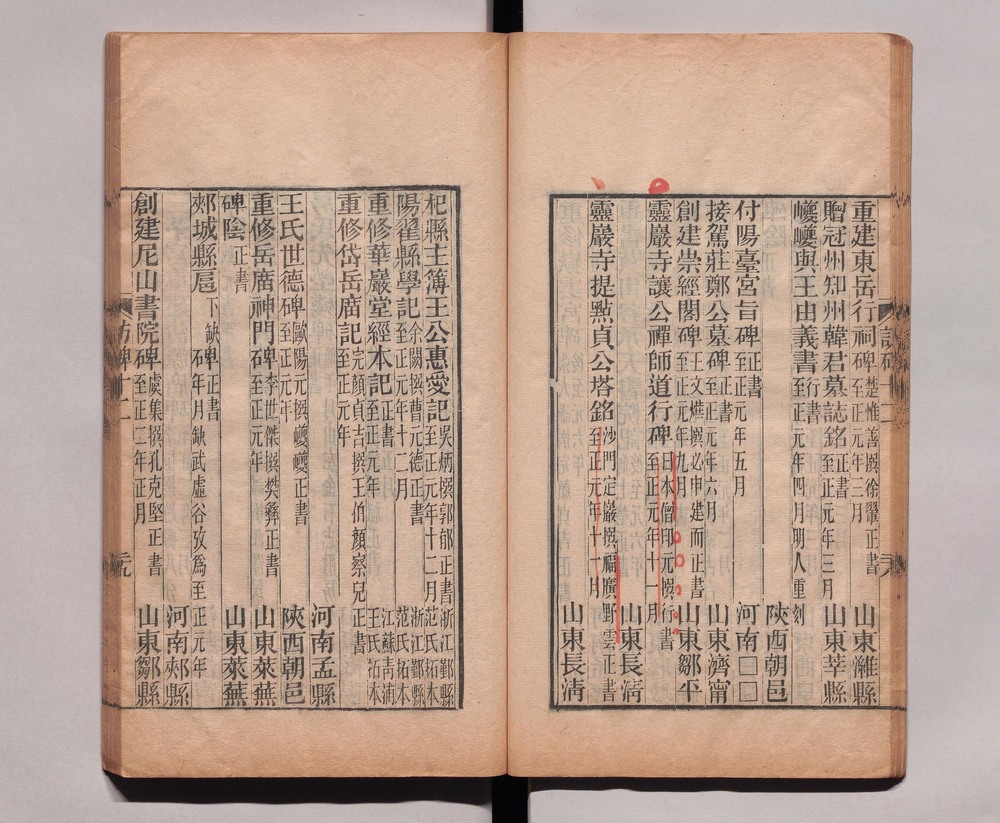 重建東岳行祠碑 楚惟善撰徐 正書 至正元年三月 山東濰縣
贈冠州知州韓君墓誌銘 正書 至正元年三月 山東莘縣
巙巙與王由義書 行書 至正元年四月明人重刻 陝西朝邑
付陽臺宮旨碑 正書 至正元年五月 河南□□
接駕莊鄭公墓碑 正書 至正元年六月 山東濟甯
創建崇經閣碑 王文燁撰必申建而正書 至正元年九月 山東鄒平
靈巖寺讓公禪師道行碑 日本僧印元撰行書 至正元年十一月 山東長清
靈巖寺提點貞公塔銘 沙門定巖撰福廣野雲正書 至正元年十一月 山東長清
訪碑 十二 元
杞縣主簿王公惠愛記 吳炳撰郭郁正書 至正元年十二月 浙江鄞縣范氏拓本
陽翟縣學記 余闕撰曹元德正書 至正元年十二月 浙江鄞縣范氏拓本
重修華嚴堂經本記 正書 至正元年 江蘇青浦王氏拓本
重修岱岳廟記 完顏貞吉撰王伯顏察兒正書 至正元年 河南孟縣
王氏世德碑 歐陽元撰巙巙正書 至正元年 陝西朝邑
重修岳廟神門碑 李世傑撰樊彝正書 至正元年 山東萊蕪
碑陰 正書 山東萊蕪
郟城縣扈 下缺 碑 正書 年月缺武虛谷攷為至正元年 河南郟縣
創建尼山書院碑 虞集撰孔克堅正書 至正二年正月 山東鄒縣
訪碑十二 元